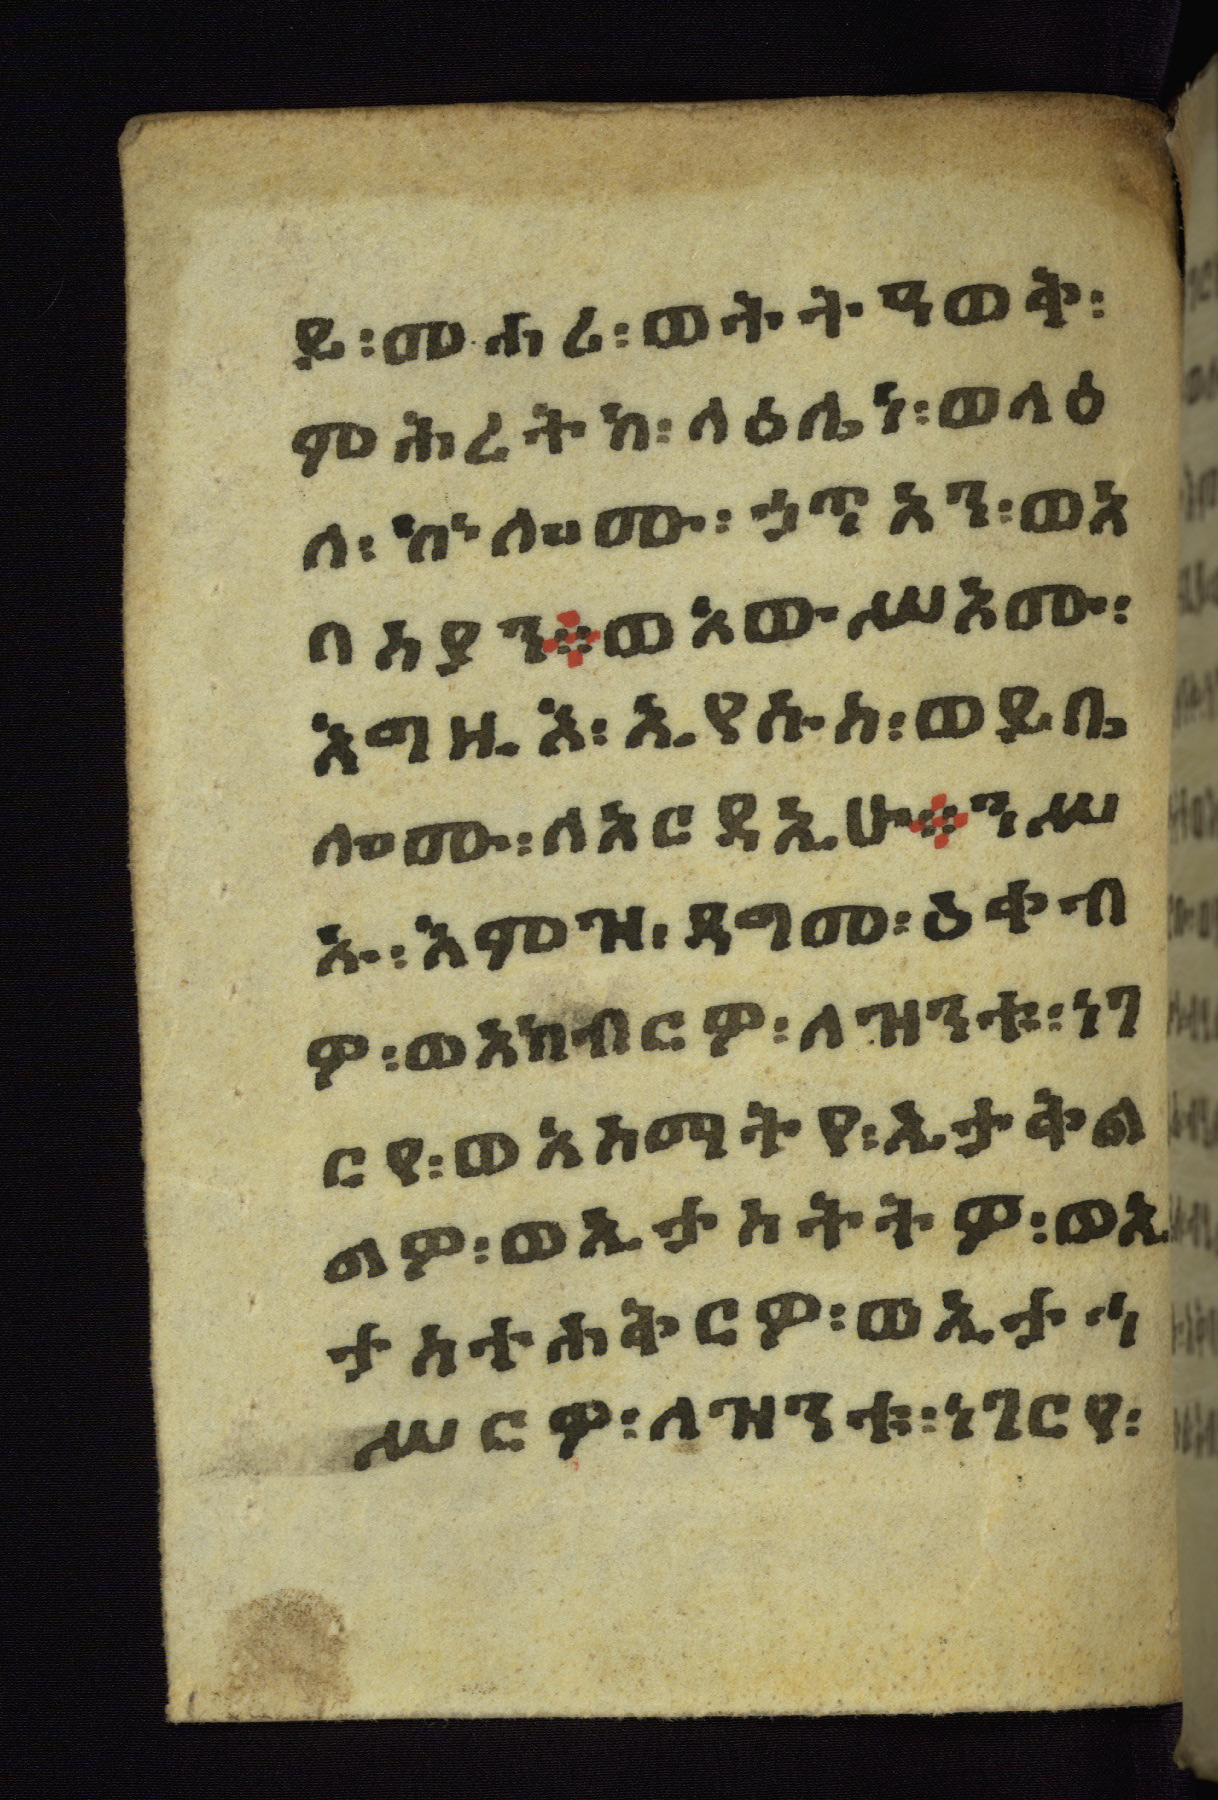 ይ፡መሐሪ፡ወትትዓወቅ፡
ምሕረትከ፡ላዕሌነ፡ወላዕ
ለ፡ኵሎሙ፡ኃጥአን፡ወአ
ባስያን፨ወአውሥአሙ፡
እግዚእ፡ኢየሱስ፡ወይቤ
ሎሙ፡ለአርዳኢሁ፨ንሥ
ኡ፡እምዝ፡ዳግመ፡ዕቀብ
ዎ፡ወአክብርዎ፡ለዝንቱ፡ነገ
ርየ፡ወአስማትየ፡ኢታቅል
ልዎ፡ወኢታስትትዎ፡ወኢ
ታስተሐቅርዎ፡ወኢታኅ
ሥርዎ፡ለዝንቱ፡ነገርየ፡